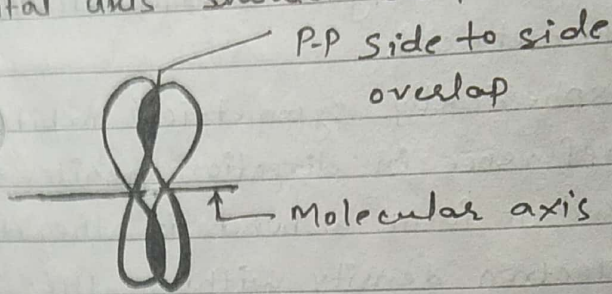 axis
P-P side to side
overlap
Molecular axis